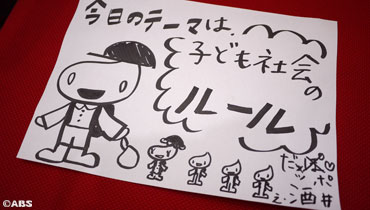 今日のテーマは、
子ども社会の
ルール
だっポ
え・酒井
©ABS